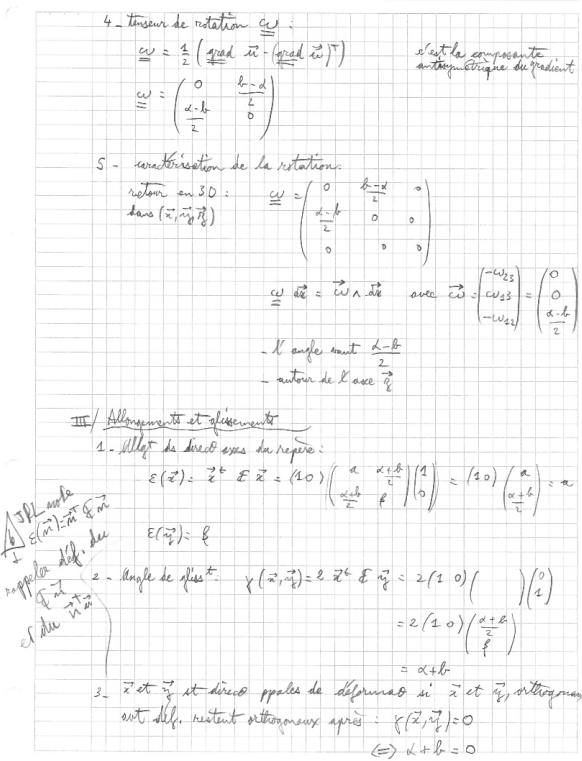 4 - tenseur de rotation ω :
ω = 1/2 ( grad u⃗ - (grad u⃗)ᵀ )
c'est la composante
antisymétrique du gradient
ω = ( 0 (b-α)/2
(α-b)/2 0 )
5 - caractérisation de la rotation.
retour en 3D : ω = ( 0 (b-α)/2 0
dans (x⃗, y⃗, z⃗) (α-b)/2 0 0
0 0 0 )
ω dx⃗ = ω⃗ ∧ dx⃗ avec ω⃗ = ( -ω23 ω13 -ω12 ) = ( 0 0 (α-b)/2 )
- l'angle vaut (α-b)/2
- autour de l'axe z⃗
III/ Allongements et glissements
1 - Allgt ds direc° axes du repère :
ε(x⃗) = x⃗ᵗ ε x⃗ = (1 0) ( a (α+b)/2 (α+b)/2 β ) ( 1 0 ) = (1 0) ( a (α+b)/2 ) = a
JPL note
ε(n⃗) = n⃗ᵗ ε n⃗
rappeler déf. du
ε n⃗
et du n⃗ᵗ n⃗
ε(y⃗) = β
2 - Angle de glissᵗ : γ(x⃗, y⃗) = 2 x⃗ᵗ ε y⃗ = 2 (1 0) ( ) ( 0 1 )
= 2 (1 0) ( (α+b)/2 β )
= α+b
3 - x⃗ et y⃗ st direc° ppales de déformat° si x⃗ et y⃗, orthogonaux
avt déf. restent orthogonaux après : γ(x⃗, y⃗) = 0
⟺ α + b = 0